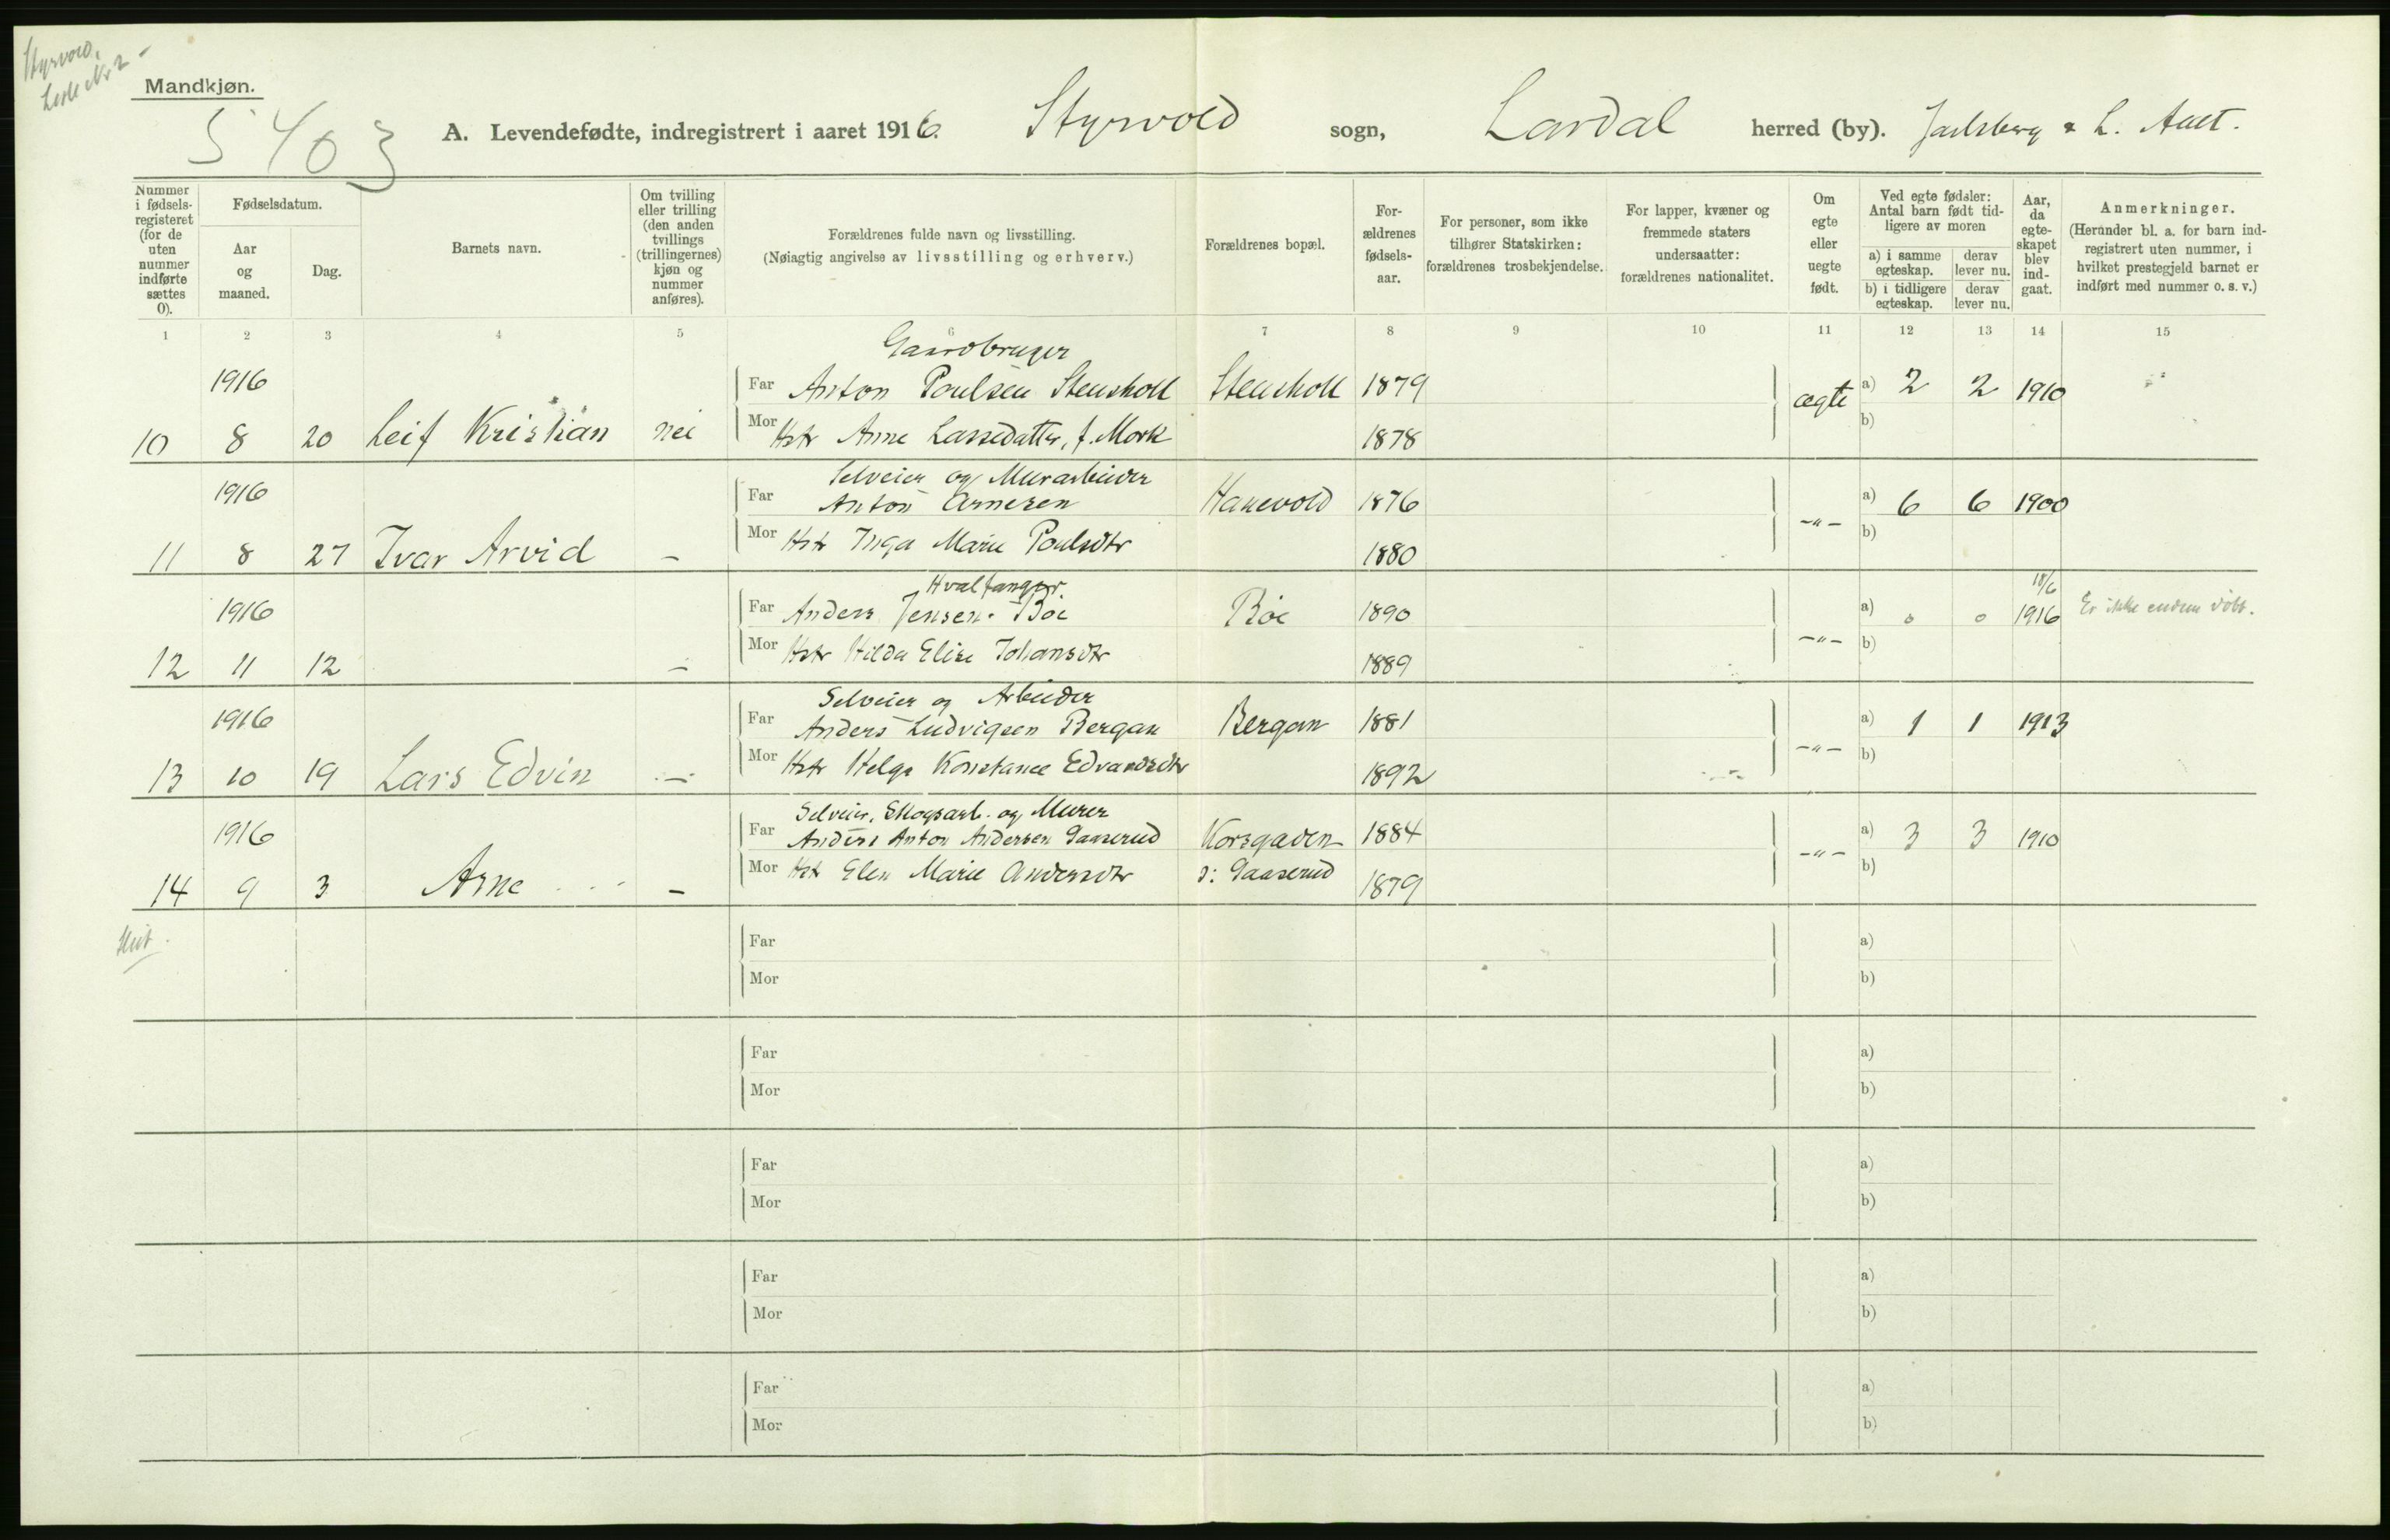 Styrvold,
Liste Nr 2 -
Mandkjøn.
5403
A. Levendefødte, indregistrert i aaret 1916. Styrvold sogn, Lardal herred (by). Jarlsberg & L. Amt.
Nummer i fødsels-registeret (for de uten nummer indførte sættes 0).
Fødselsdatum.
Aar og maaned.
Dag.
Barnets navn.
Om tvilling eller trilling (den anden tvillings (trillingernes) kjøn og nummer anføres).
Forældrenes fulde navn og livsstilling.
(Nøiagtig angivelse av livsstilling og erhverv.)
Forældrenes bopæl.
For-ældrenes fødsels-aar.
For personer, som ikke tilhører Statskirken: forældrenes trosbekjendelse.
For lapper, kvæner og fremmede staters undersaatter: forældrenes nationalitet.
Om egte eller uegte født.
Ved egte fødsler: Antal barn født tid-ligere av moren
a) i samme egteskap.
derav lever nu.
b) i tidligere egteskap.
derav lever nu.
Aar, da egte-skapet blev ind-gaat.
Anmerkninger.
(Herunder bl. a. for barn ind-registrert uten nummer, i hvilket prestegjeld barnet er indført med nummer o. s. v.)
1 2 3 4 5 6 7 8 9 10 11 12 13 14 15
Gaardbruger
1916 Far Anton Poulsen Stensholt Stensholt 1879 ægte a) 2 2 1910
10 8 20 Leif Kristian nei Mor Hstr Anne Larsedatter, f. Mork 1878 b)
Selveier og Murarbeider
1916 Far Anton Arnesen Hanevold 1876 -"- a) 6 6 1900
11 8 27 Ivar Arvid - Mor Hstr Inga Marie Poulsdtr 1880 b)
Hvalfanger.
1916 Far Anders Jensen Bøe Bøe 1890 -"- a) 0 0 18/6 1916 Er ikke endnu døbt.
12 11 12 - Mor Hstr Hilda Elise Johansdtr 1889 b)
Selveier og Arbeider
1916 Far Anders Ludvigsen Bergan Bergan 1881 -"- a) 1 1 1913
13 10 19 Lars Edvin - Mor Hstr Helga Konstance Edvardsdtr 1892 b)
Selveier, Skogsarb. og Murer
1916 Far Anders Anton Andersen Gaaserud Korsgaden 1884 -"- a) 3 3 1910
14 9 3 Arne - Mor Hst Elen Marie Andersdtr ɔ: Gaaserud 1879 b)
Slut.
Far a)
Mor b)
Far a)
Mor b)
Far a)
Mor b)
Far a)
Mor b)
Far a)
Mor b)